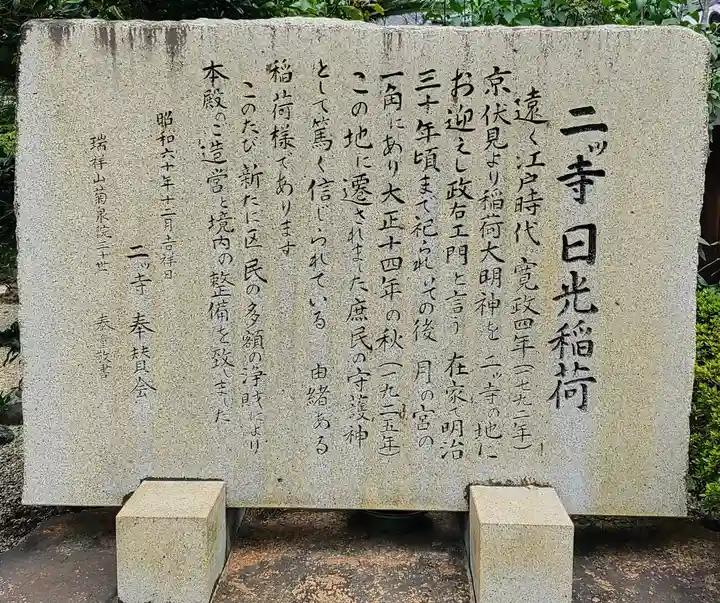 二ッ寺 日光稲荷
遠く江戸時代、寛政四年(一七九二年)
京伏見より稲荷大明神を 二ッ寺の地に
お迎えし政右エ門と言う 在家で明治
三十年頃まで祀られ、その後 月の宮の
一角にあり大正十四年の秋(一九二五年)
この地に遷されました庶民の守護神
として篤く信じられている 由緒ある
稲荷様であります
このたび 新たに区民の多額の浄財により
本殿のご造営と境内の整備を致しました
昭和六十年十二月吉祥日
二ッ寺 奉賛会
瑞祥山菊泉院三十世
泰 敬書